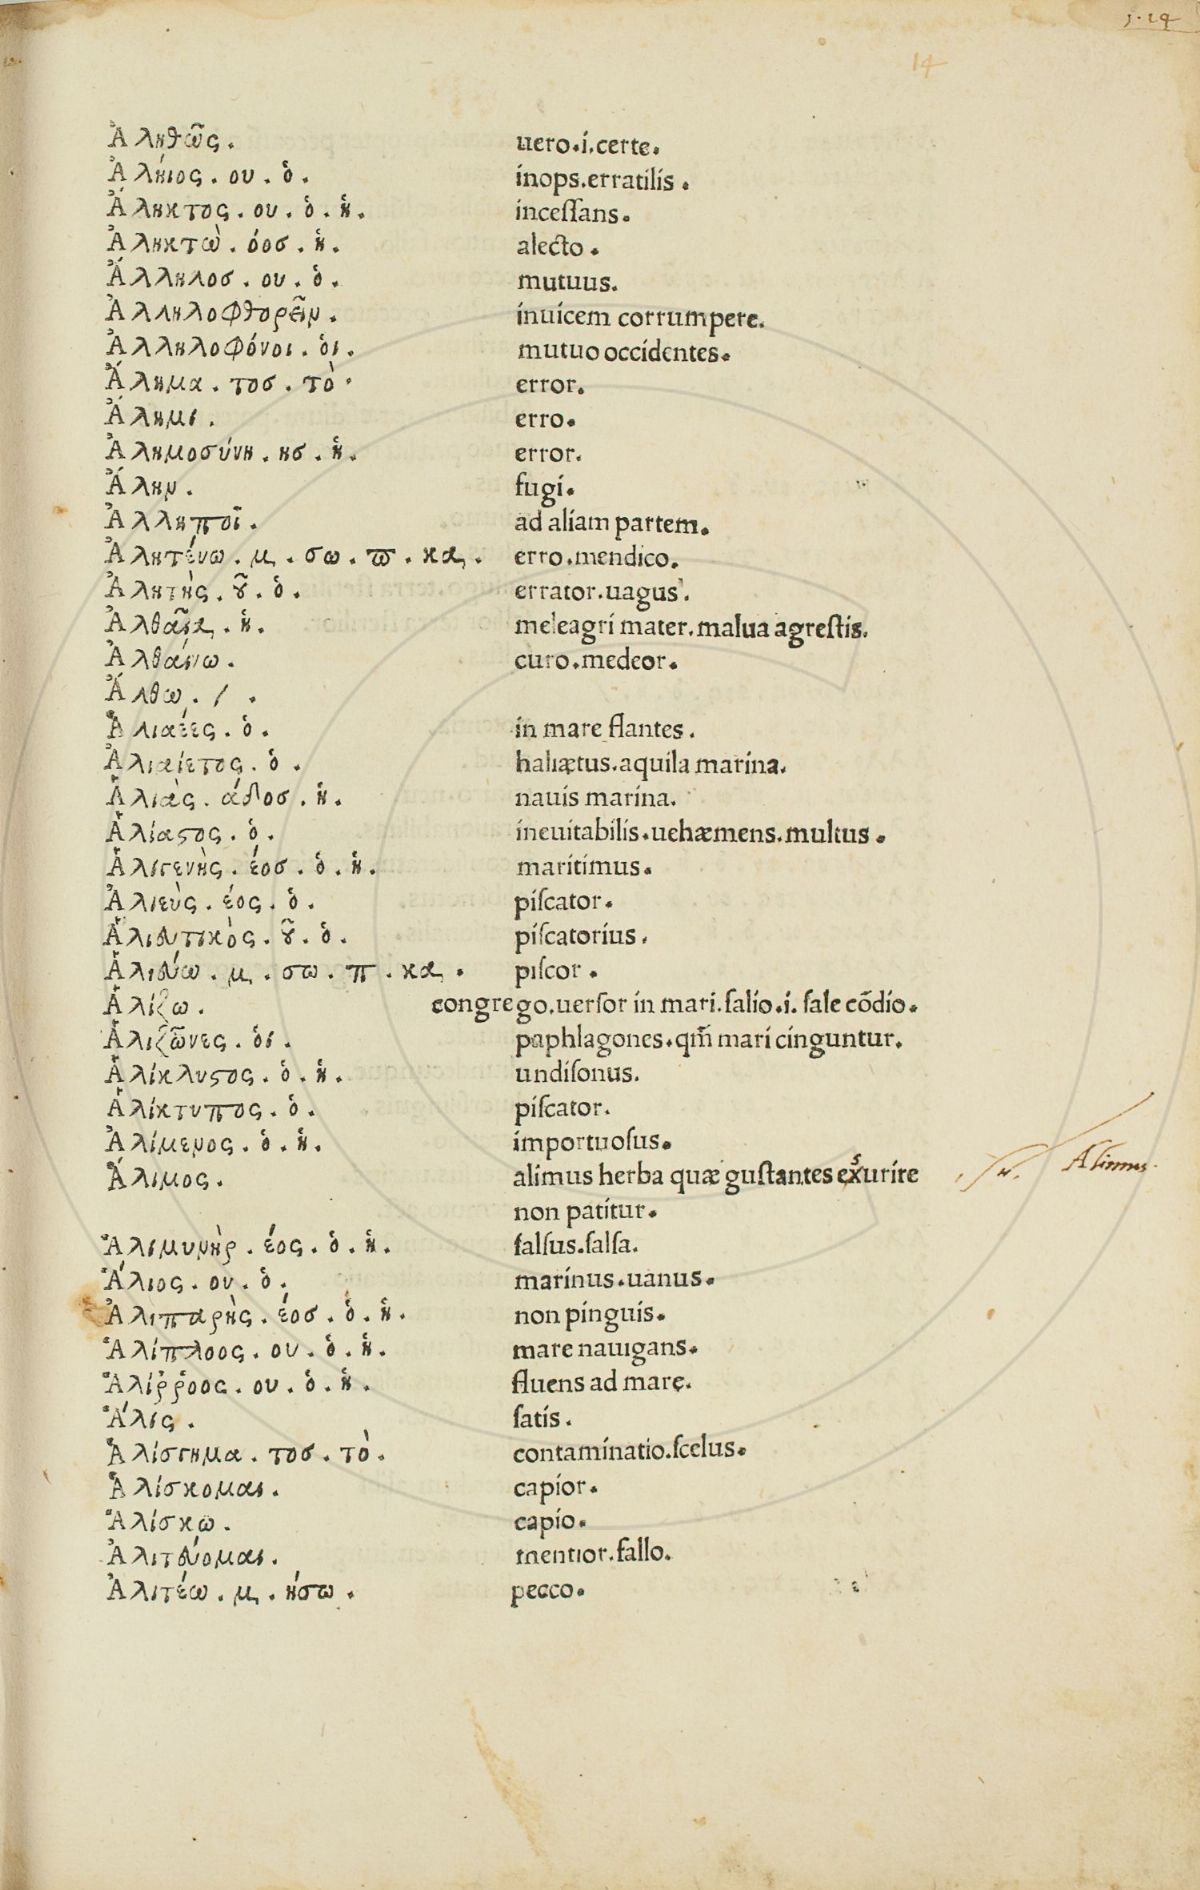 14
Ἀληθῶς. uero.i.certe.
Ἀλήιος. ου. ὁ. inops.erratilis.
Ἄληκτος. ου. ὁ. ἡ. incessans.
Ἀληκτὼ. όοσ. ἡ. alecto.
Ἄλληλοσ. ου. ὁ. mutuus.
Ἀλληλοφθορεῖν. inuicem corrumpere.
Ἀλληλοφόνοι. ὁι. mutuo occidentes.
Ἄλημα. τοσ. τὸ. error.
Ἄλημι. erro.
Ἀλημοσύνη. ησ. ἡ. error.
Ἄλην. fugi.
Ἀλληποῖ. ad aliam partem.
Ἀλητένω. μ. σω. π. κα. erro.mendico.
Ἀλητὴς. οῦ. ὁ. errator.uagus.
Ἀλθαῖα. ἡ. meleagri mater.malua agrestis.
Ἀλθαίνω. curo.medeor.
Ἄλθω. /.
Ἁλιαέες. ὁ. in mare flantes.
Ἁλιαίετος. ὁ. haliætus.aquila marina.
Ἁλιὰς. άδοσ. ἡ. nauis marina.
Ἀλίαστος. ὁ. ineuitabilis.uehæmens.multus.
Ἁλιγενὴς. έοσ. ὁ. ἡ. maritimus.
Ἁλιεὺς. έος. ὁ. piscator.
Ἁλιευτικὸς. οῦ. ὁ. piscatorius.
Ἁλιεύω. μ. σω. π. κα. piscor.
Ἁλίζω. congrego.uersor in mari.salio.i. sale cōdio.
Ἁλιζῶνες. ὁι. paphlagones.qm̄ mari cinguntur.
Ἁλίκλυστος. ὁ. ἡ. undisonus.
Ἁλίκτυπος. ὁ. piscator.
Ἀλίμενος. ὁ. ἡ. importuosus.
Ἄλιμος. alimus herba quæ gustantes exurire
non patitur.
Alimus.
Ἁλιμυρὴς. έος. ὁ. ἡ. salsus.salsa.
Ἅλιος. ου. ὁ. marinus.uanus.
Ἀλιπαρὴς. έοσ. ὁ. ἡ. non pinguis.
Ἁλίπλοος. ου. ὁ. ἡ. mare nauigans.
Ἁλίῤῥοος. ου. ὁ. ἡ. fluens ad mare.
Ἅλις. satis.
Ἀλίσγημα. τοσ. τὸ. contaminatio.scelus.
Ἁλίσκομαι. capior.
Ἁλίσκω. capio.
Ἀλιτεύομαι. mentior.fallo.
Ἀλιτέω. μ. ήσω. pecco.